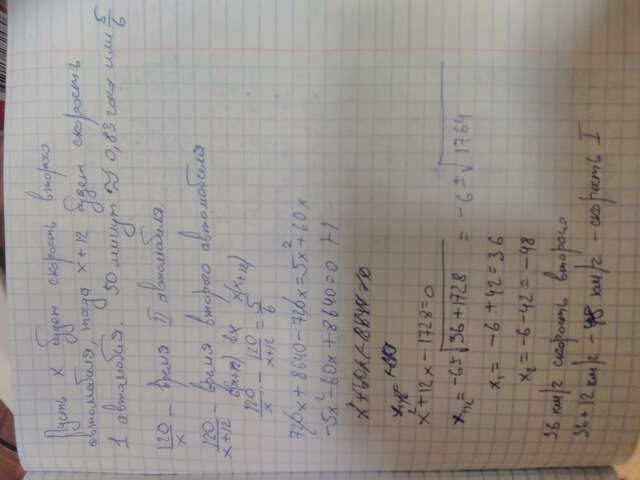 Пусть x будет скорость второго
автомобиля, тогда x+12 будет скорость
1 автомобиля. 50 минут ≈ 0,83 часа или 5/6
120/x - время II автомобиля.
120/x+12 - время второго автомобиля
6(x+12) 6x x(x+12)
120/x - 120/x+12 = 5/6
720x + 8640 - 720x = 5x² + 60x
-5x² - 60x + 8640 = 0 |-1
x² + 12x - 1728 = 0
x₁,₂ = -6 ± √36+1728 = -6 ± √1764
x₁ = -6 + 42 = 36
x₂ = -6 - 42 = -48
36 км/г скорость второго
36+12 км/г - 48 км/г - скорость I